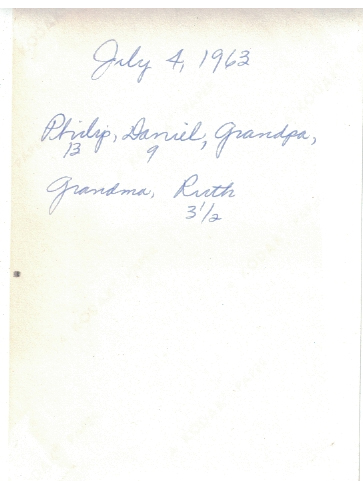 July 4, 1963
Philip, Daniel, Grandpa,
13 9
Grandma, Ruth
3 1/2